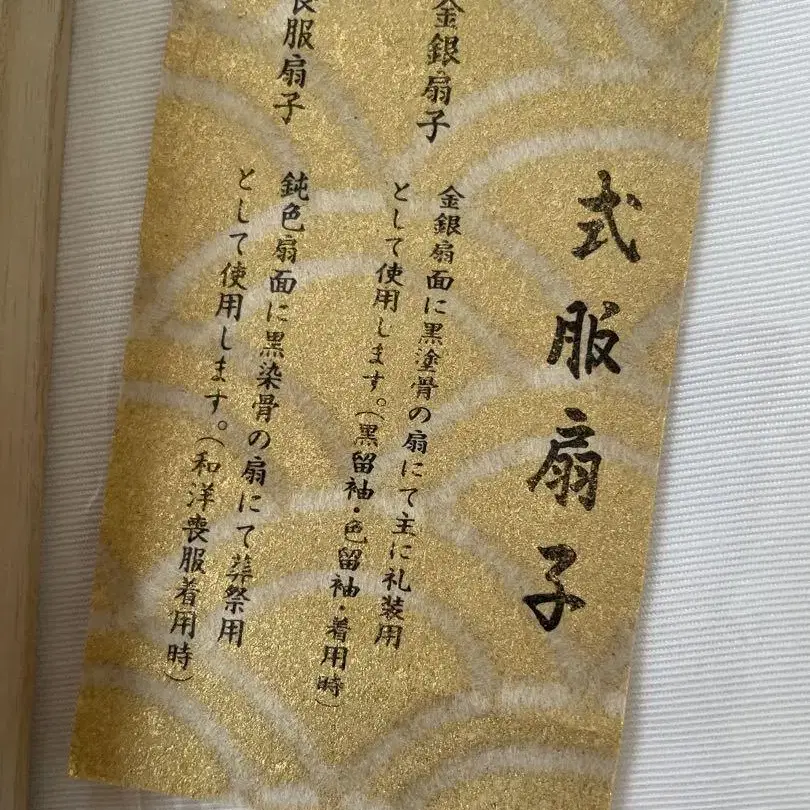 式服扇子
金銀扇子
金銀扇面に黒塗骨の扇にて主に礼装用
として使用します。(黒留袖・色留袖・着用時)
喪服扇子
鈍色扇面に黒染骨の扇にて葬祭用
として使用します。(和洋喪服着用時)